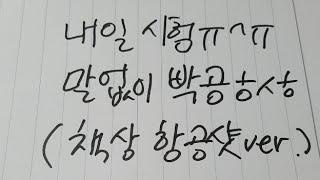 내일 시험ㅠ^ㅠ
말없이 빡공영상
(책상 항공샷ver.)